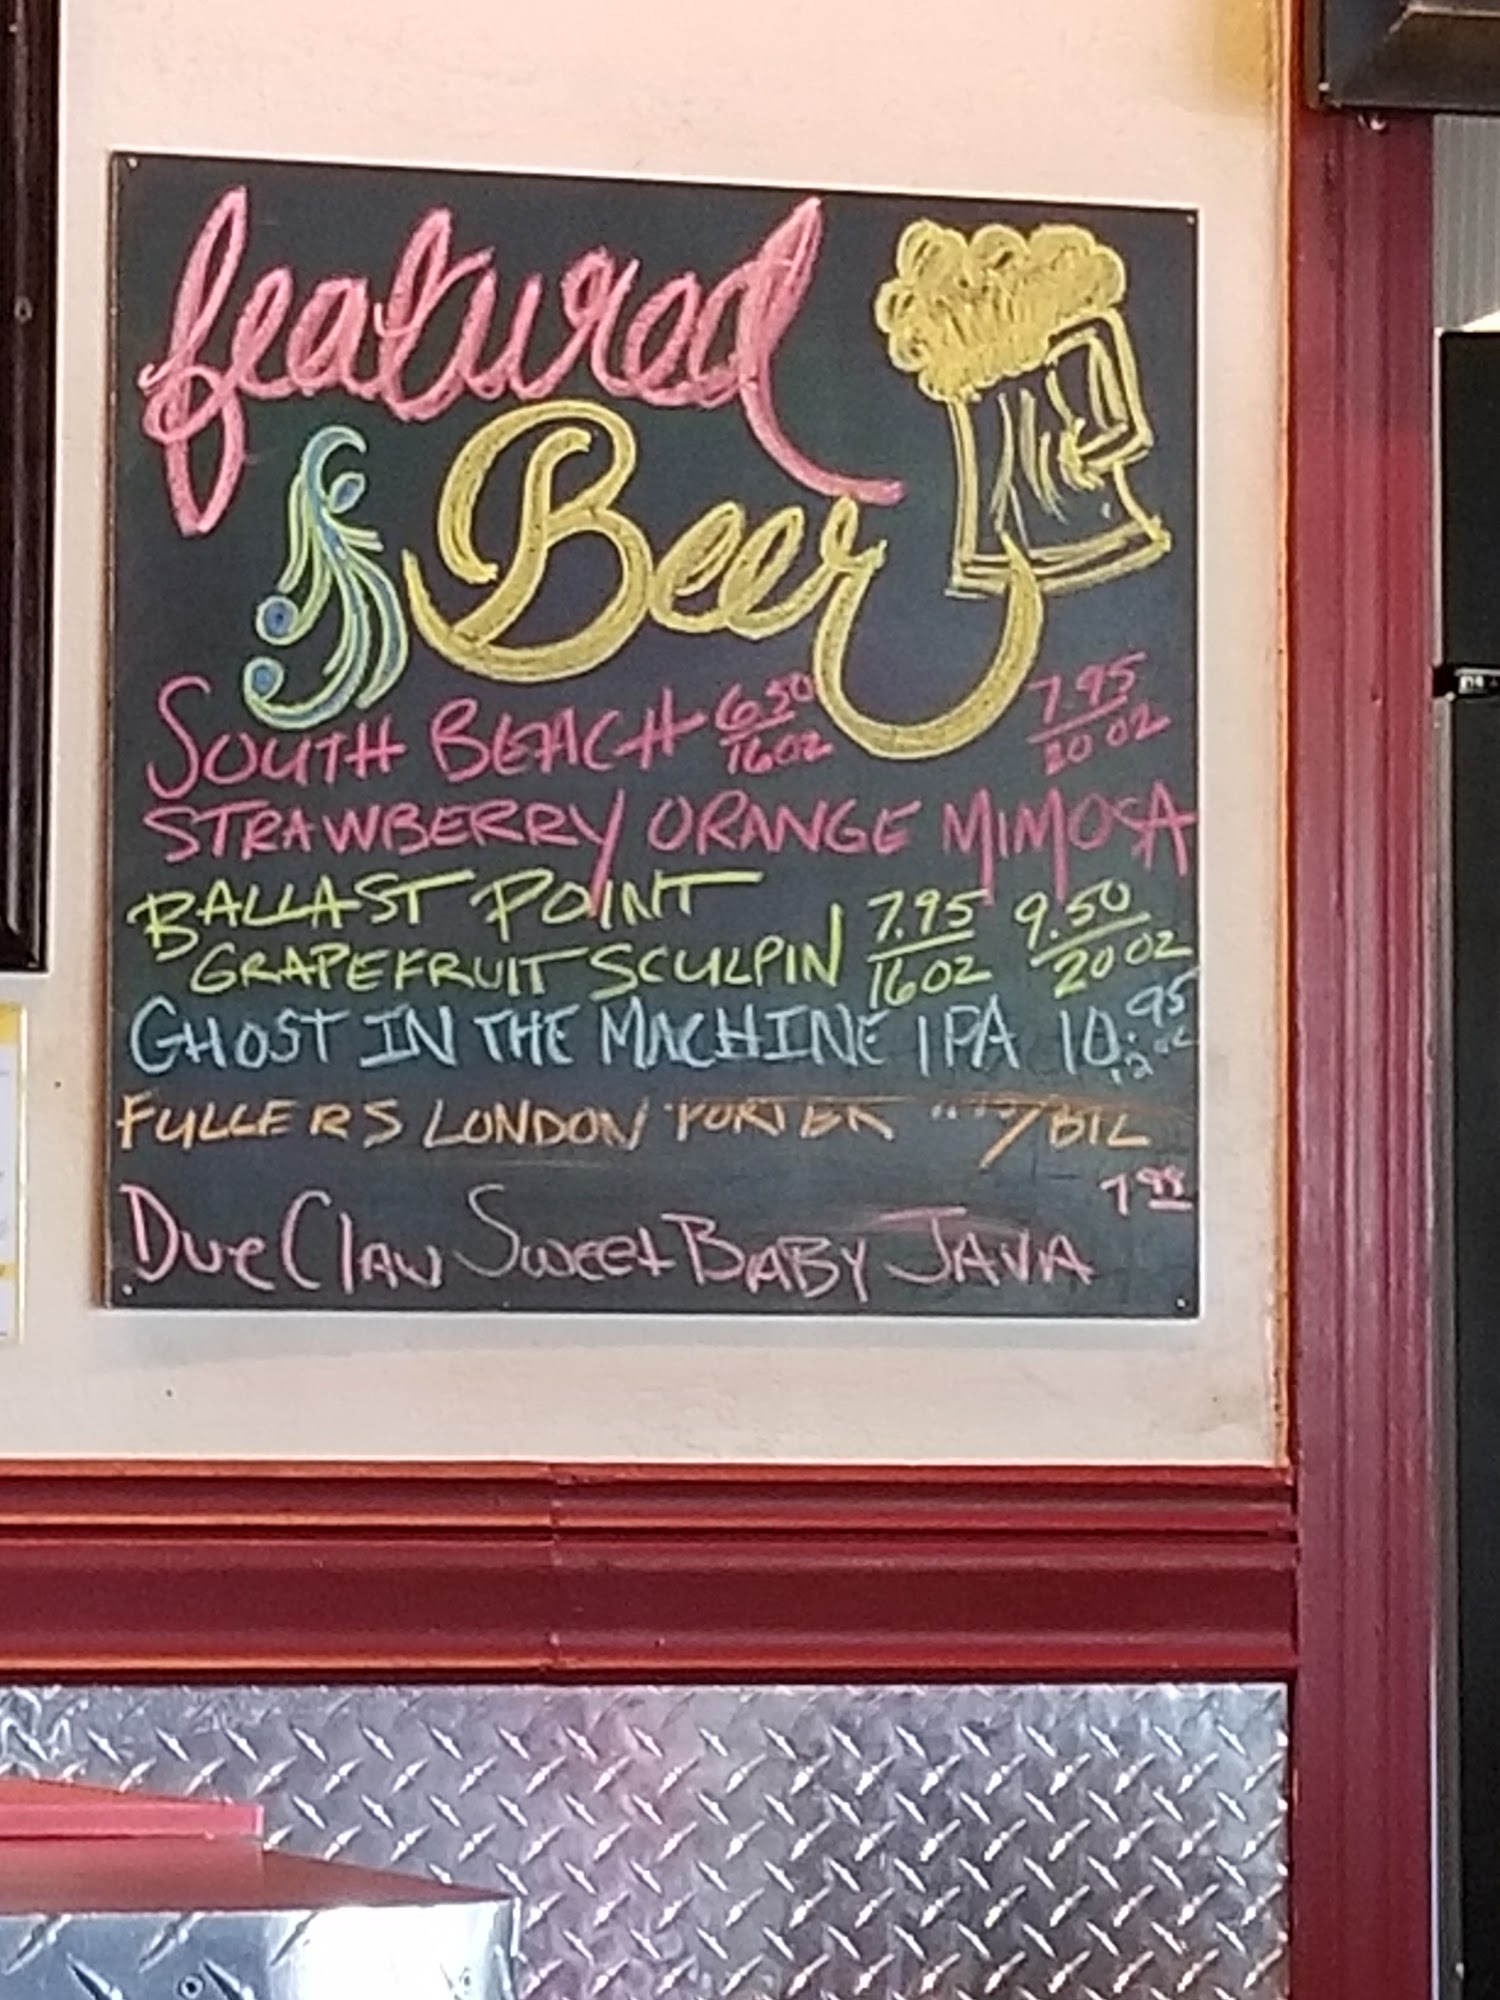 featured
Beer
SOUTH BEACH 6.50 16 OZ 7.95 20 OZ
STRAWBERRY ORANGE MIMOSA
BALLAST POINT
GRAPEFRUIT SCULPIN 7.95 16 OZ 9.50 20 OZ
GHOST IN THE MACHINE IPA 10.95 12 OZ
FULLERS LONDON PORTER /BTL
7.99
Due Claw Sweet BABY JAVA